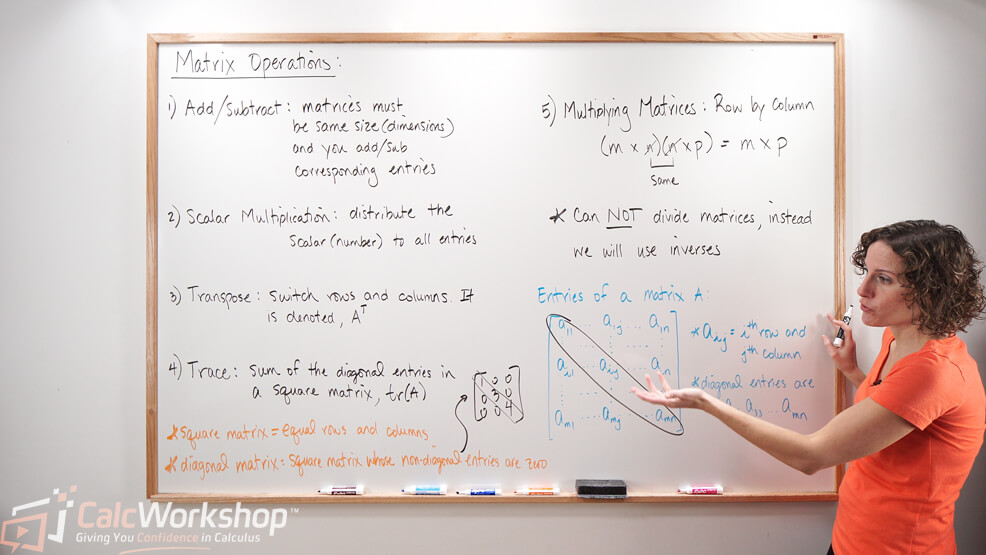 Matrix Operations:
1) Add/Subtract: matrices must
be same size (dimensions)
and you add/sub
corresponding entries
2) Scalar Multiplication: distribute the
scalar (number) to all entries
3) Transpose: switch rows and columns. It
is denoted, Aᵀ
4) Trace: sum of the diagonal entries in
a square matrix, tr(A)
1 0 0
0 3 0
0 0 4
* square matrix = equal rows and columns
* diagonal matrix = square matrix whose non-diagonal entries are zero
5) Multiplying Matrices: Row by Column
(m × n)(n × p) = m × p
same
* Can NOT divide matrices, instead
we will use inverses
Entries of a matrix A:
a₁₁ ... a₁ⱼ ... a₁ₙ
aᵢ₁ ... aᵢⱼ ... aᵢₙ
aₘ₁ ... aₘⱼ ... aₘₙ
* aᵢⱼ = iᵗʰ row and
jᵗʰ column
* diagonal entries are
a₃₃ ... aₘₙ
CalcWorkshop™
Giving You Confidence in Calculus